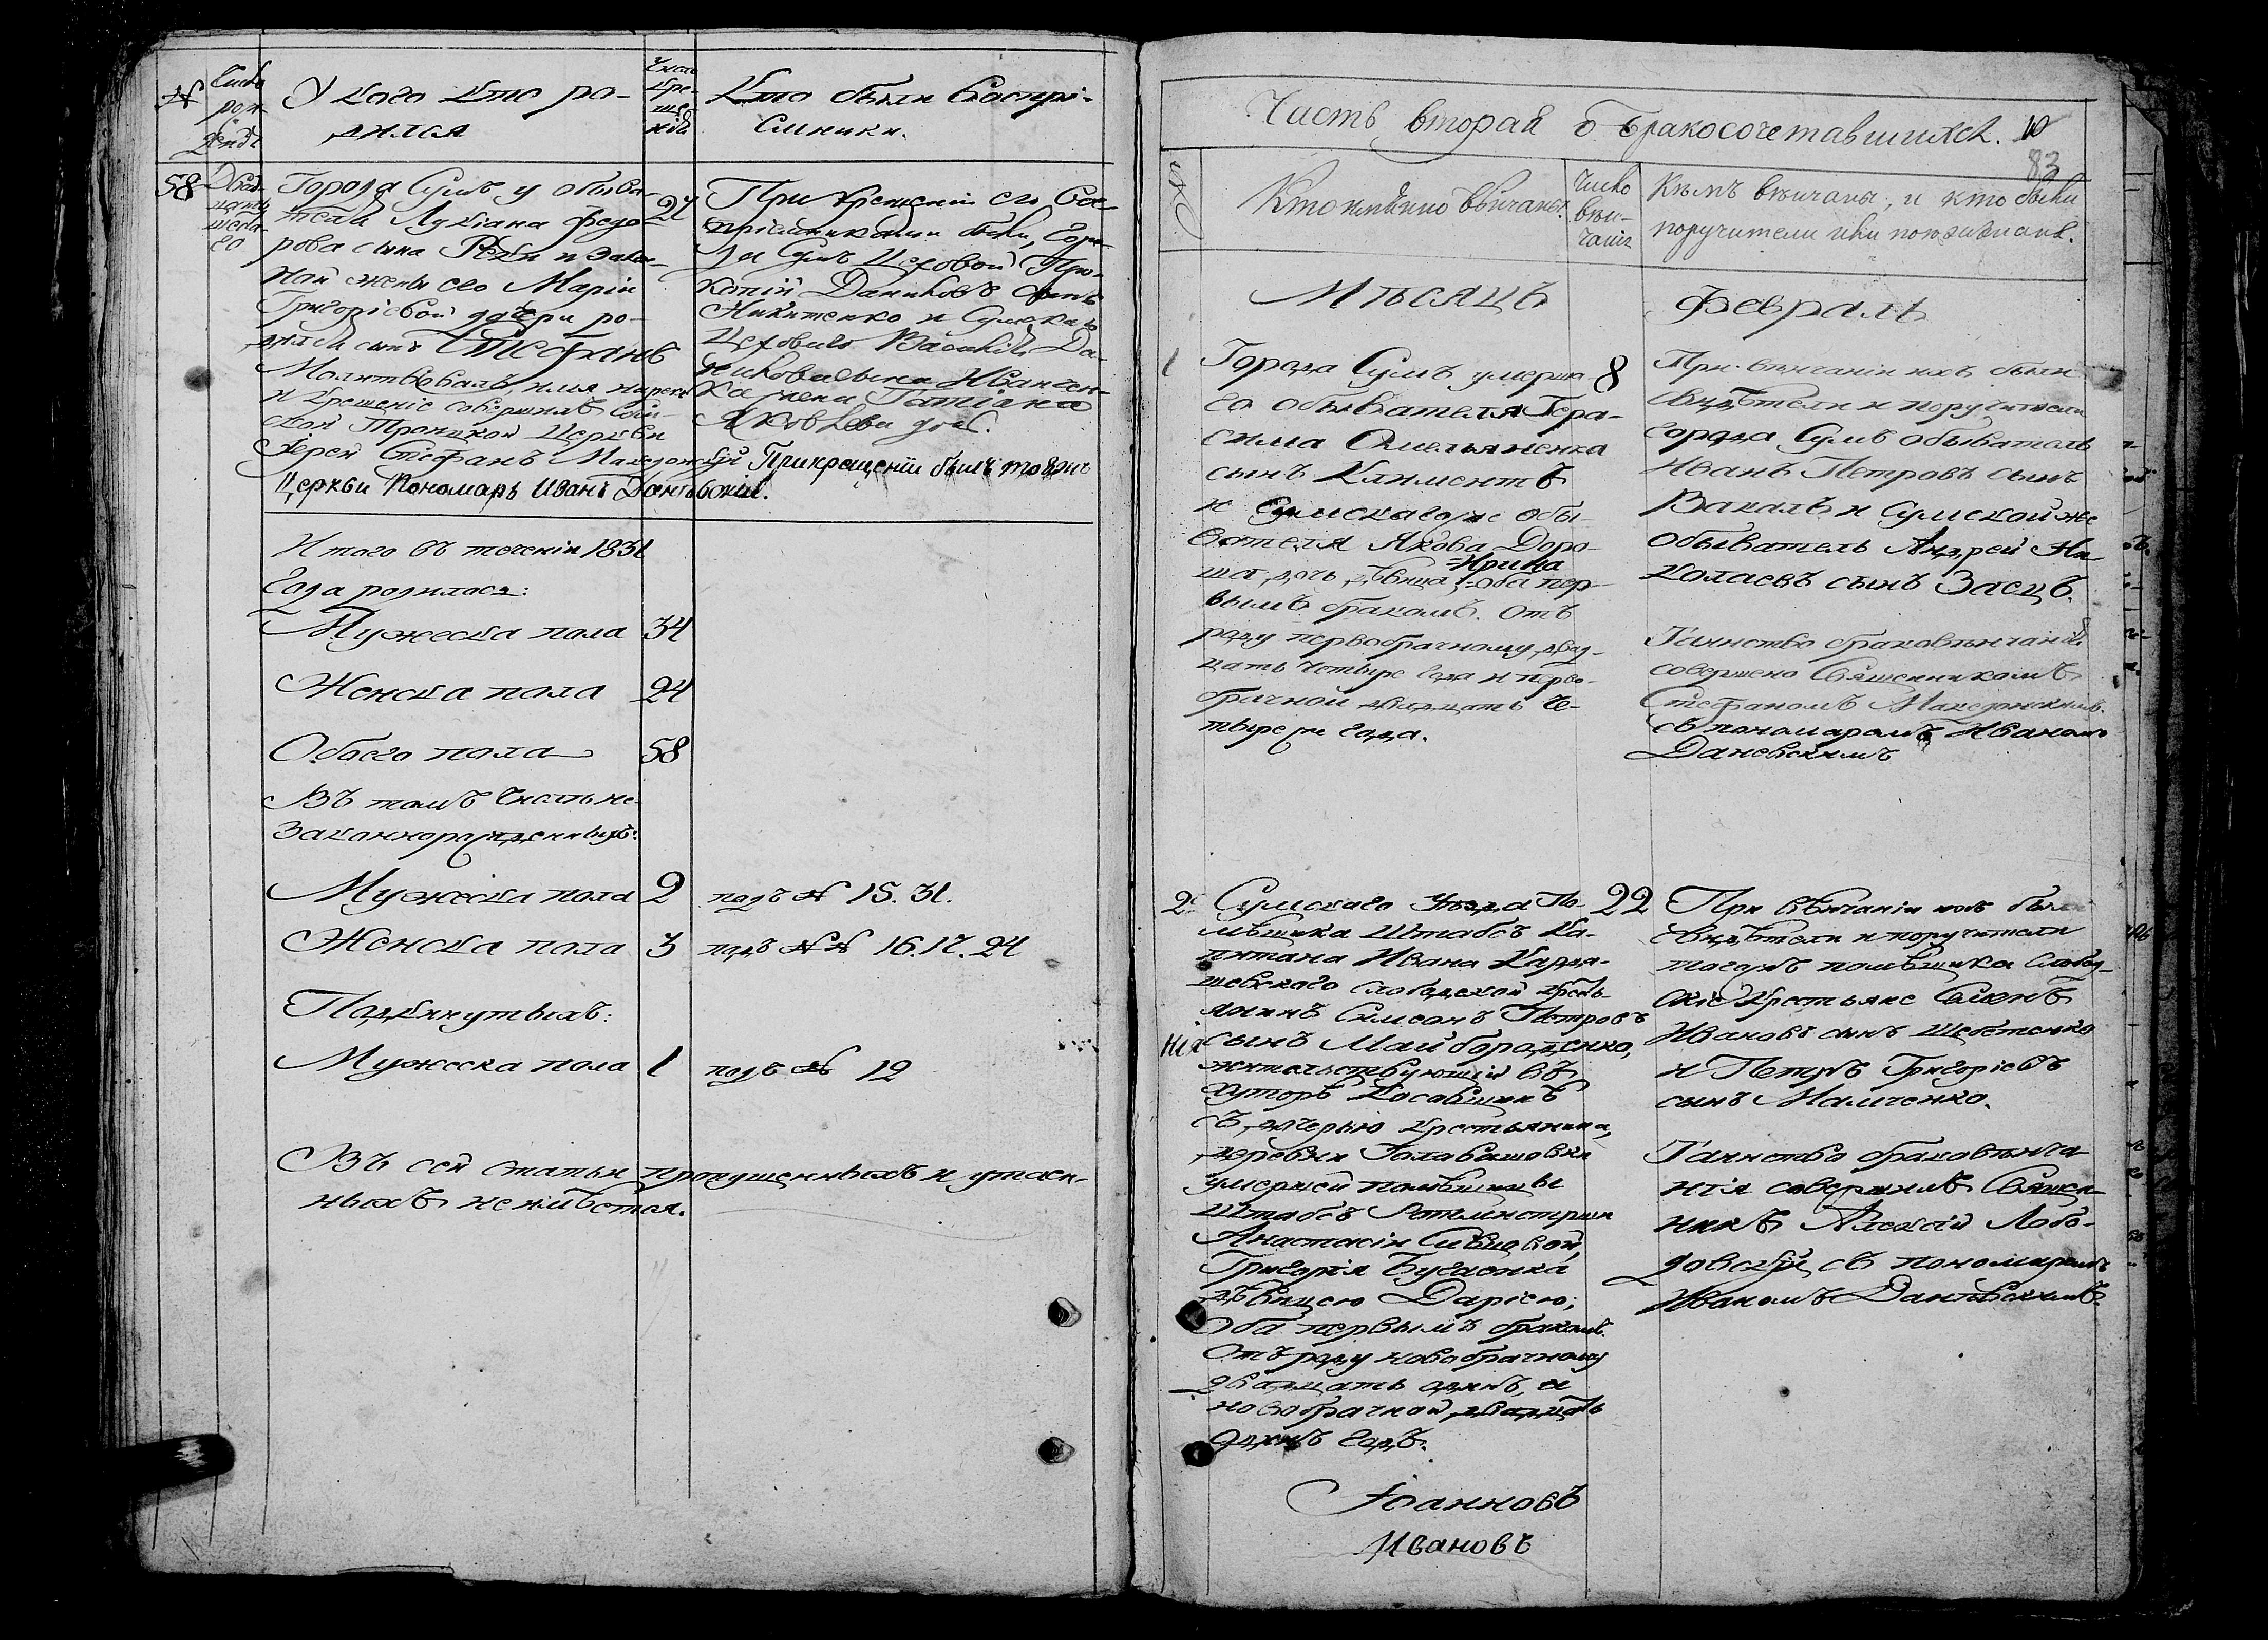 №
Число рож-
денія
У кого кто ро-
дился
Число кре-
ще-
нія
Кто были воспрі-
емники.
58
Двад-
цать
шеста-
го
Города Сумъ у обыва-
теля Лукіана Федо-
рова сына и закон-
ной жены его Маріи
Григоріевой дочери ро-
дился сынъ Стефанъ
Молитвовалъ, имя нарекъ
и крещеніе совершилъ
Троицкой Церкви
Іерей Стефанъ Македонскій
27
При крещеніи его вос-
пріемниками были, горо-
да Сумъ Цеховой Про-
копій Даниловъ сынъ
Никитенко и Сумскаго
Цеховаго Василія Да-
нилова сына Иванчен-
ка жена Татіана
Яковлева доч.
При крещеніи былъ тояжъ
Церкви Пономарь Иванъ Даневскій.
Итого въ теченіи 1831
года родилося:
Мужеска пола 34
Женска пола 24
Обоего пола 58
Въ томъ числѣ не-
законнорожденныхъ:
Мужеска пола 2 подъ № 15. 31.
Женска пола 3 подъ №№ 16. 17. 24
Подкинутыхъ:
Мужеска пола 1 подъ № 12
Въ сей статьи пропущенныхъ и утаен-
ныхъ не имѣется.
Часть вторая о бракосочетавшихся. 10
83
Кто именно вѣнчаны.
Число
вѣн-
чанія
Кѣмъ вѣнчаны, и кто были
поручители или поѣзжане.
Мѣсяцъ Февраль
1
Города Сумъ умерша-
го обывателя Гера-
сима Омельяненка
сынъ Климентъ
и Сумскаго же обы-
вателя Якова Доро-
ша дочь дѣвица Ирина оба пер-
вымъ бракомъ. Отъ
роду первобрачному двад-
цать четыре года и перво-
брачной двадцать че-
тыре же года.
8
При вѣнчаніи ихъ были
свидѣтели и поручители
города Сумъ обыватель
Иванъ Петровъ сынъ
Вакалъ и Сумской же
обыватель Андрей Ни-
колаевъ сынъ Заецъ.
Таинство браковѣнчанія
совершено Священникомъ
Стефаномъ Македонскимъ
съ пономаремъ Иваномъ
Даневскимъ
2.
Сумскаго уѣзда По-
мѣщика Штабсъ Ка-
питана Ивана Карда-
шевскаго слободской кресть-
янинъ Симеонъ Петровъ
сынъ Майбороденко,
жительствующій въ
хуторѣ Косовщинѣ
съ дочерью крестьянина,
деревни Головашовки
умершей помѣщицы
Штабсъ Ротмистрши
Анастасіи
Григорія Бугаенка
дѣвицею Даріею;
Оба первымъ бракомъ.
Отъ роду новобрачному
двадцать одинъ, а
новобрачной двадцать
одинъ годъ.
22
При вѣнчаніи ихъ были
свидѣтели и поручители
тогожъ помѣщика слобод-
скіе Крестьяне
Ивановъ сынъ
и Петръ Григоріевъ
сынъ Мамченко.
Таинство браковѣнча-
нія совершилъ Священ-
никъ Алексій Лобо-
довскій съ пономаремъ
Иваномъ Даневскимъ.
Іоанновъ
Ивановъ